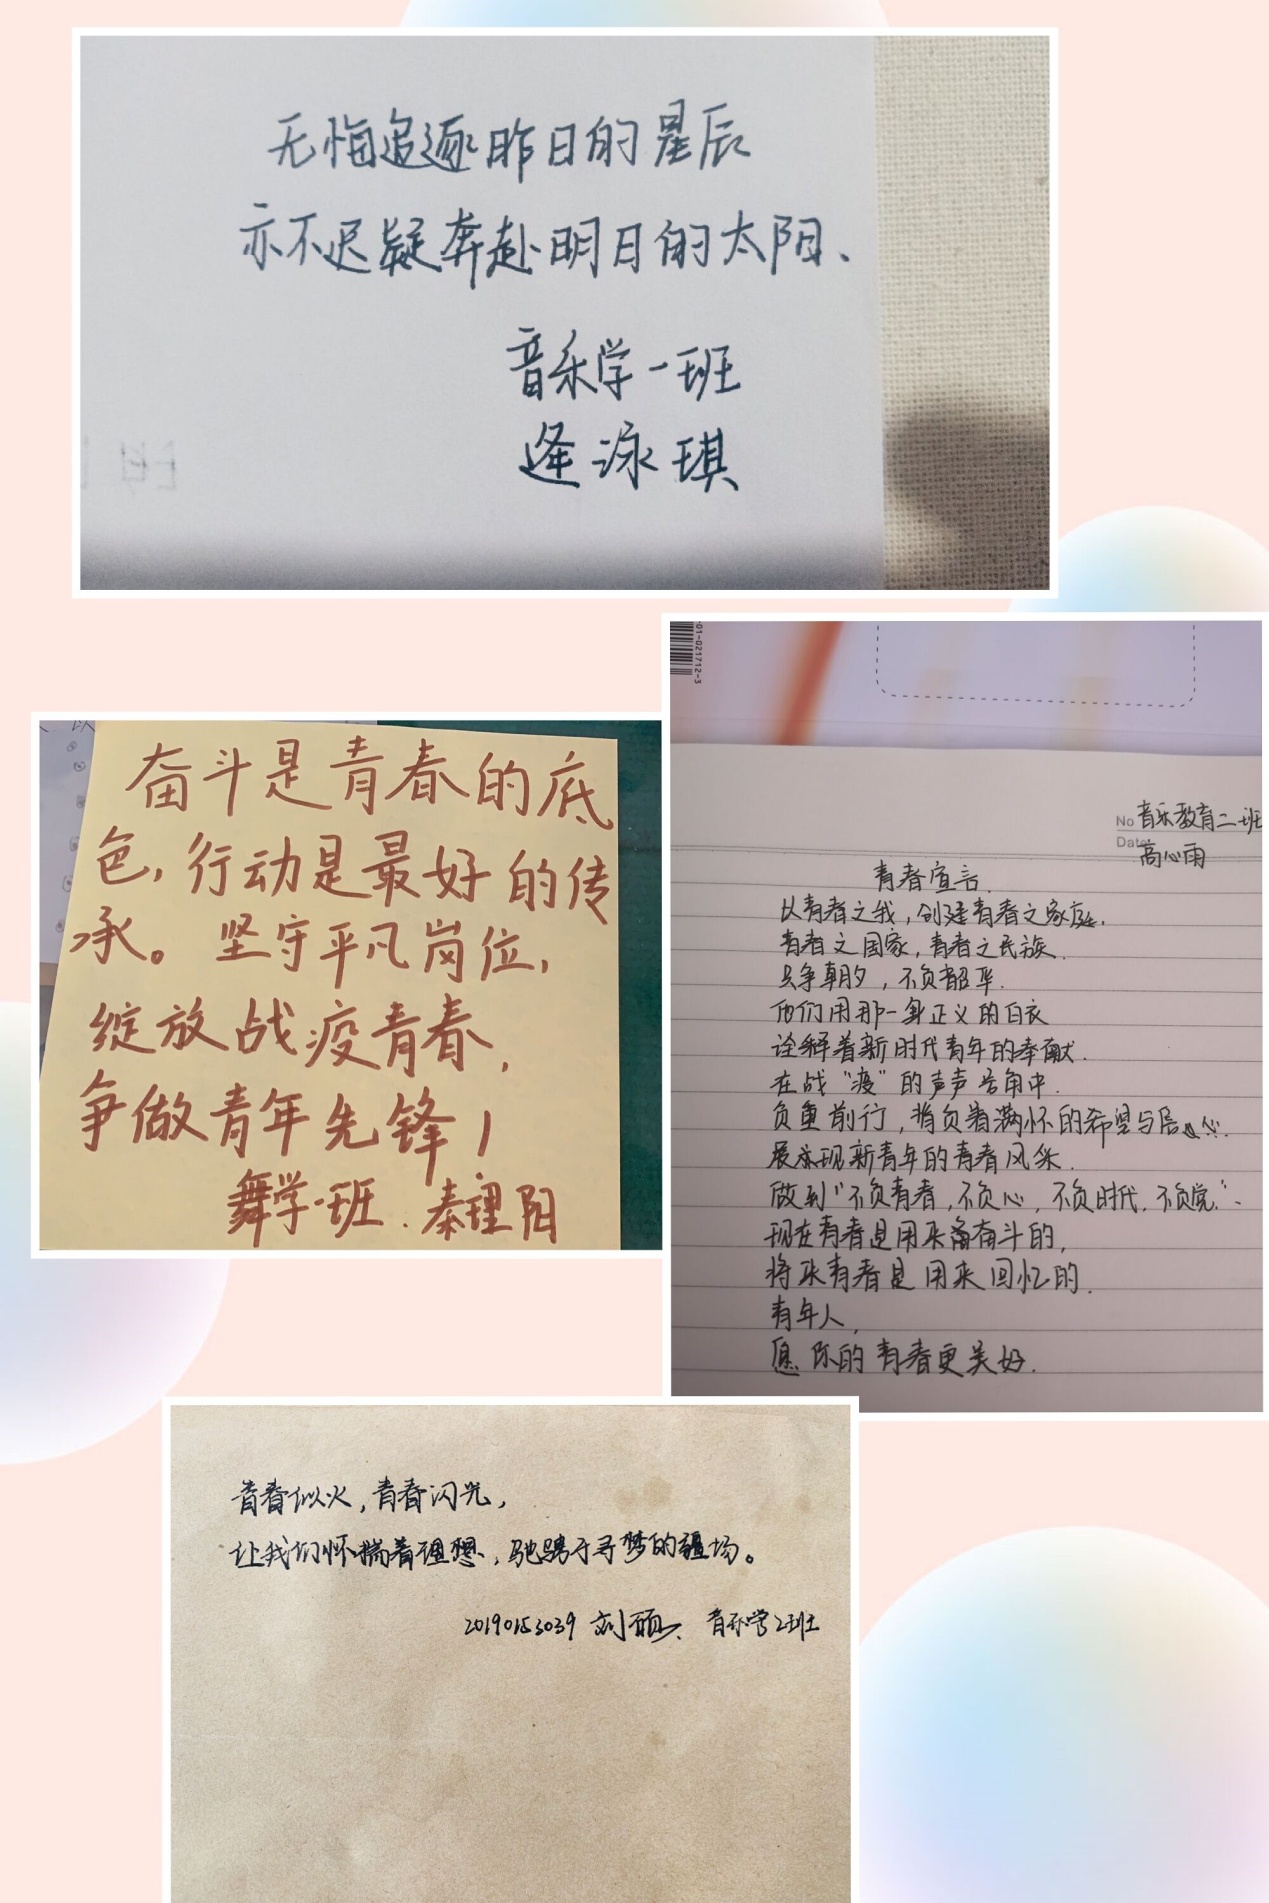 无悔追逐昨日的星辰
亦不迟疑奔赴明日的太阳、
音乐学一班
逄泳琪
奋斗是青春的底
色,行动是最好的传
承。坚守平凡岗位,
绽放战疫青春,
争做青年先锋!
舞学一班.秦理阳
01-021712-3
No 音乐教育二班
Date 高心雨
青春宣言.
以青春之我,创建青春之家庭.
青春之国家,青春之民族.
只争朝夕,不负韶华.
他们用那一身正义的白衣
诠释着新时代青年的奉献.
在战“疫”的声声号角中.
负重前行,背负着满怀的希望与信心.
展现新青年的青春风采.
做到“不负青春,不负心,不负时代,不负党.”.
现在青春是用来奋斗的,
将来青春是用来回忆的.
青年人,
愿你的青春更美好.
青春似火,青春闪光,
让我们怀揣着理想,驰骋于寻梦的疆场。
20190153039 刘硕、音乐学2班